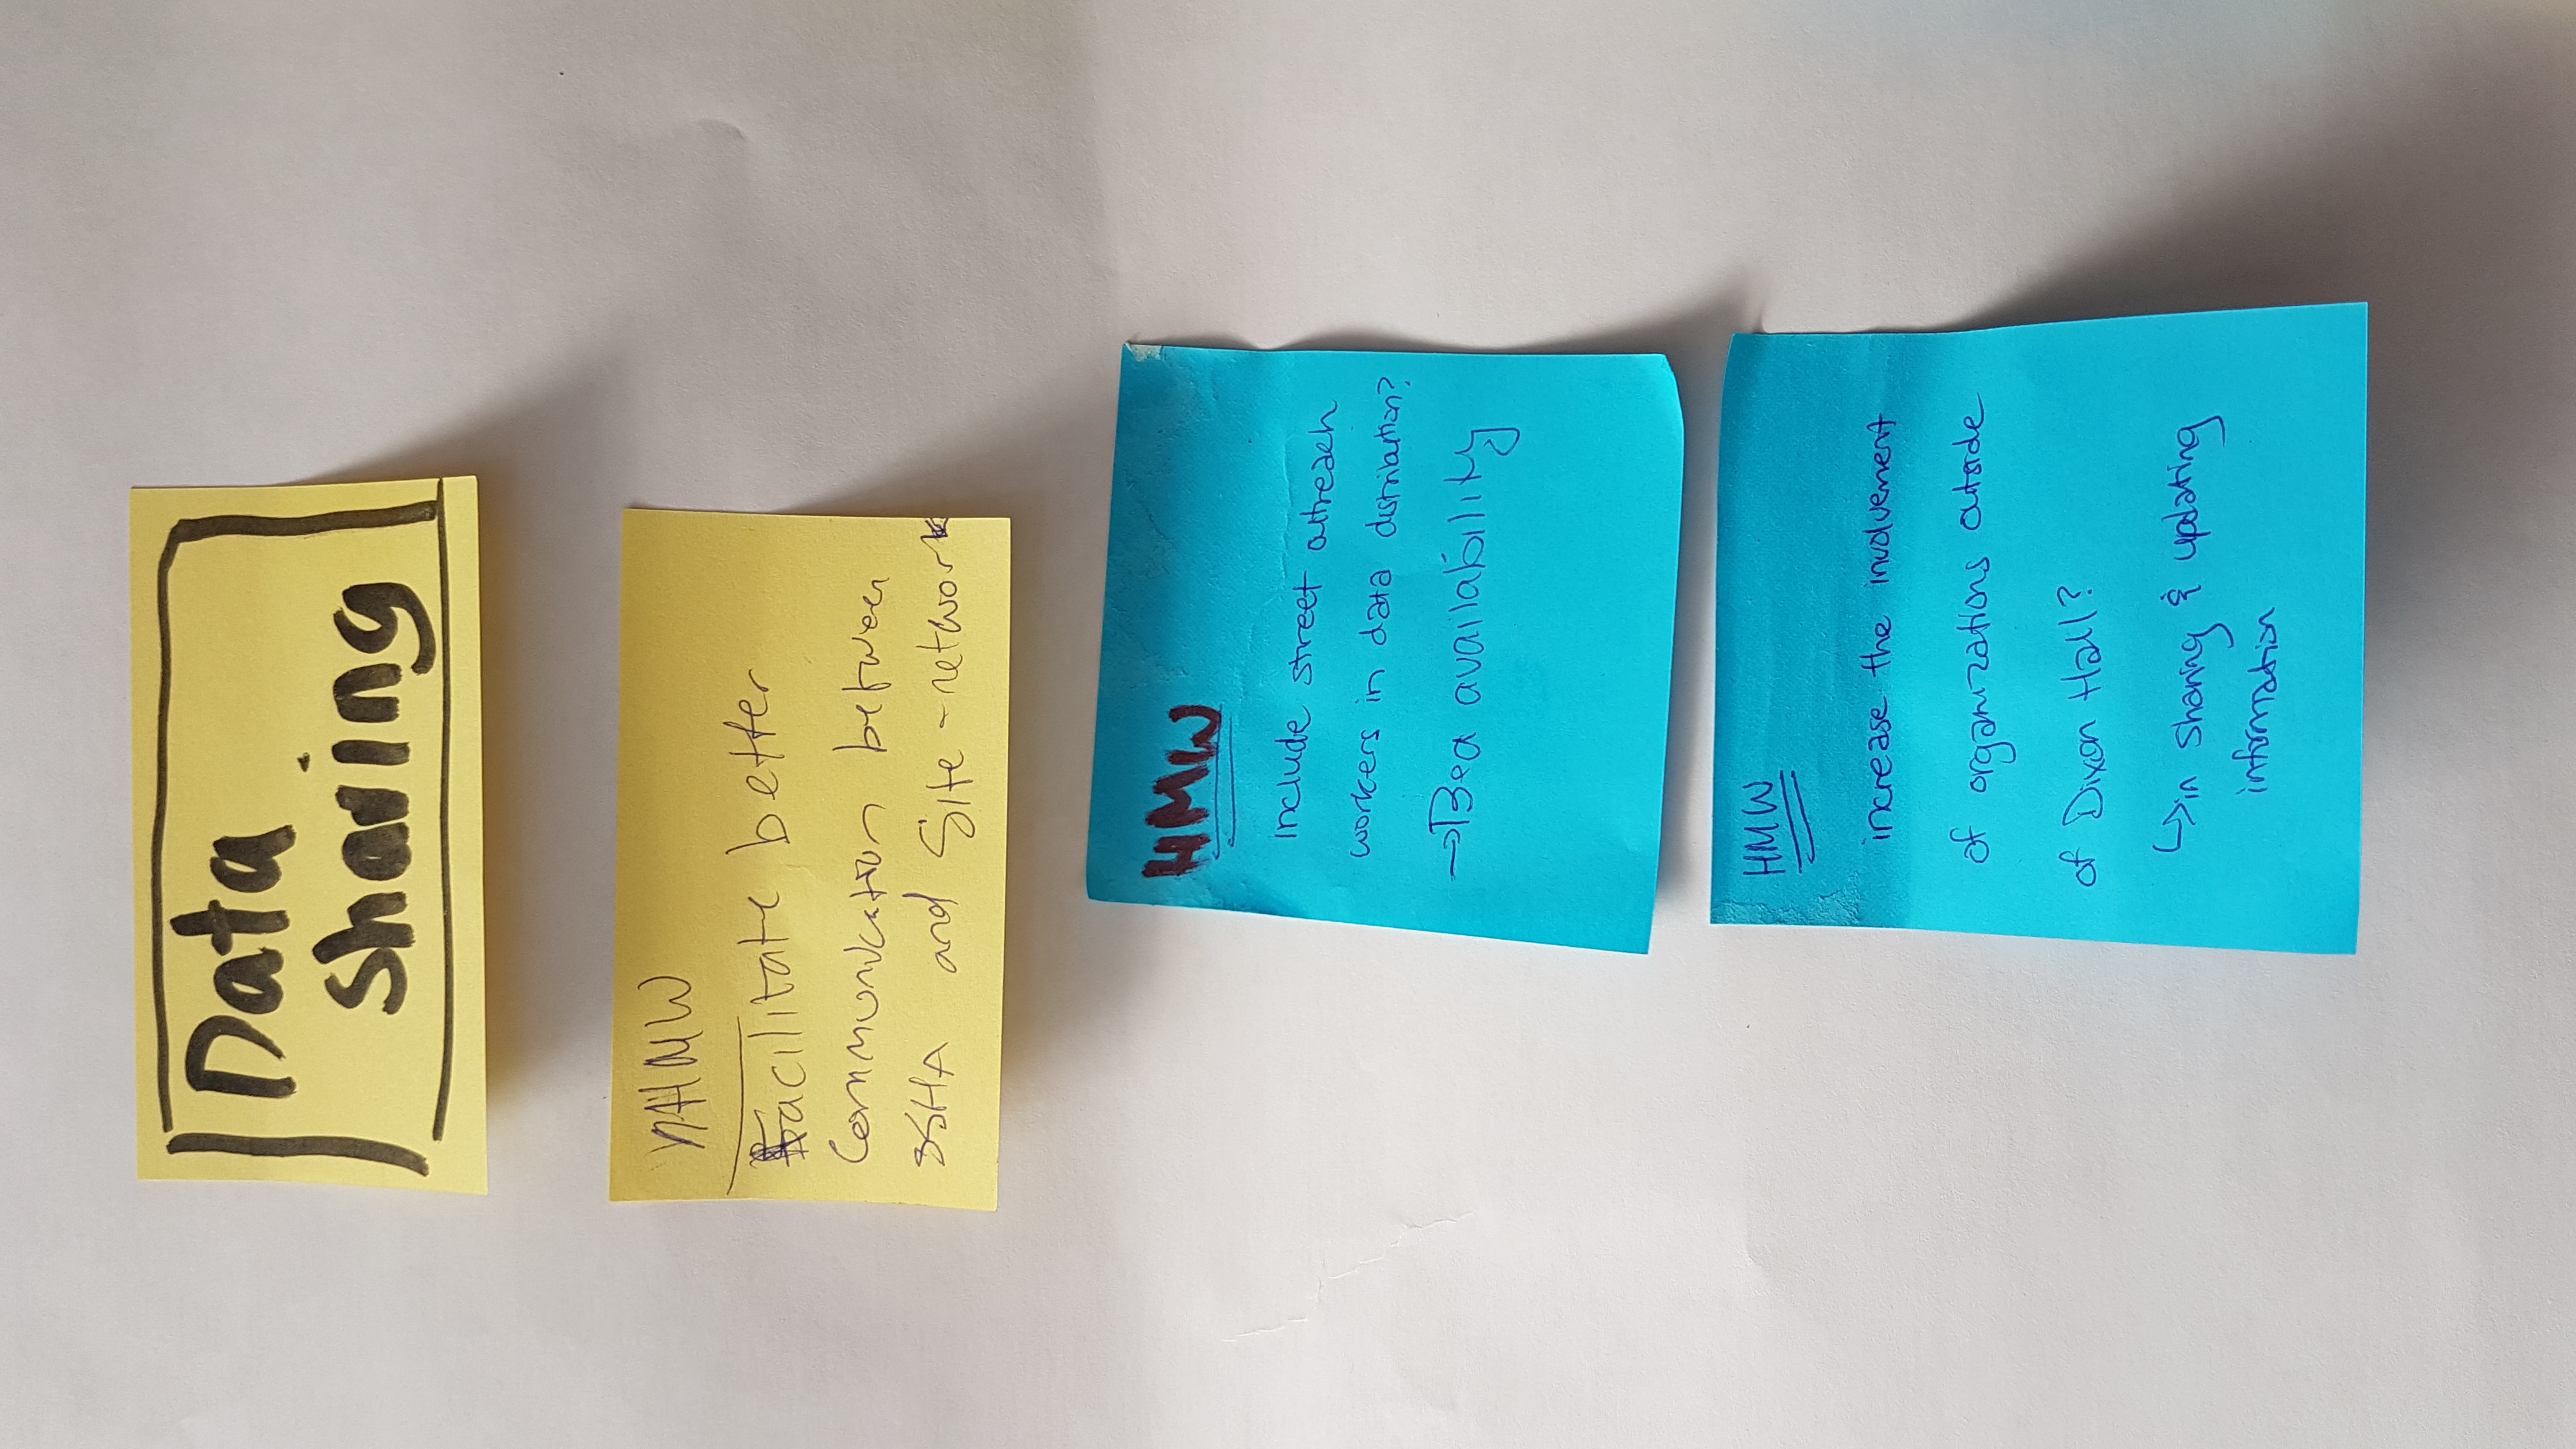 Data
sharing
HMW
Facilitate better
Communication between
SSHA and Site-network
HMW
include street outreach
workers in data distribution?
→Bed availability
HMW
increase the involvement
of organizations outside
of Dixon Hall?
↳in sharing & updating
information